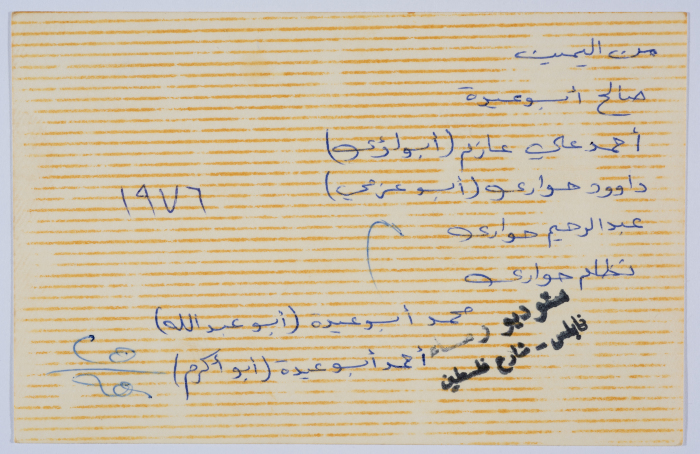 من اليمين
صالح أبو عيدة
أحمد علي عازم (أبو لؤي)
داوود حواري (أبو عزمي)
١٩٧٦
عبدالرحيم حواري
نظام حواري
محمد أبو عيدة (أبو عبد الله)
أحمد أبو عيدة (أبو أكرم)
ستوديو رساء
نابلس - شارع فلسطين